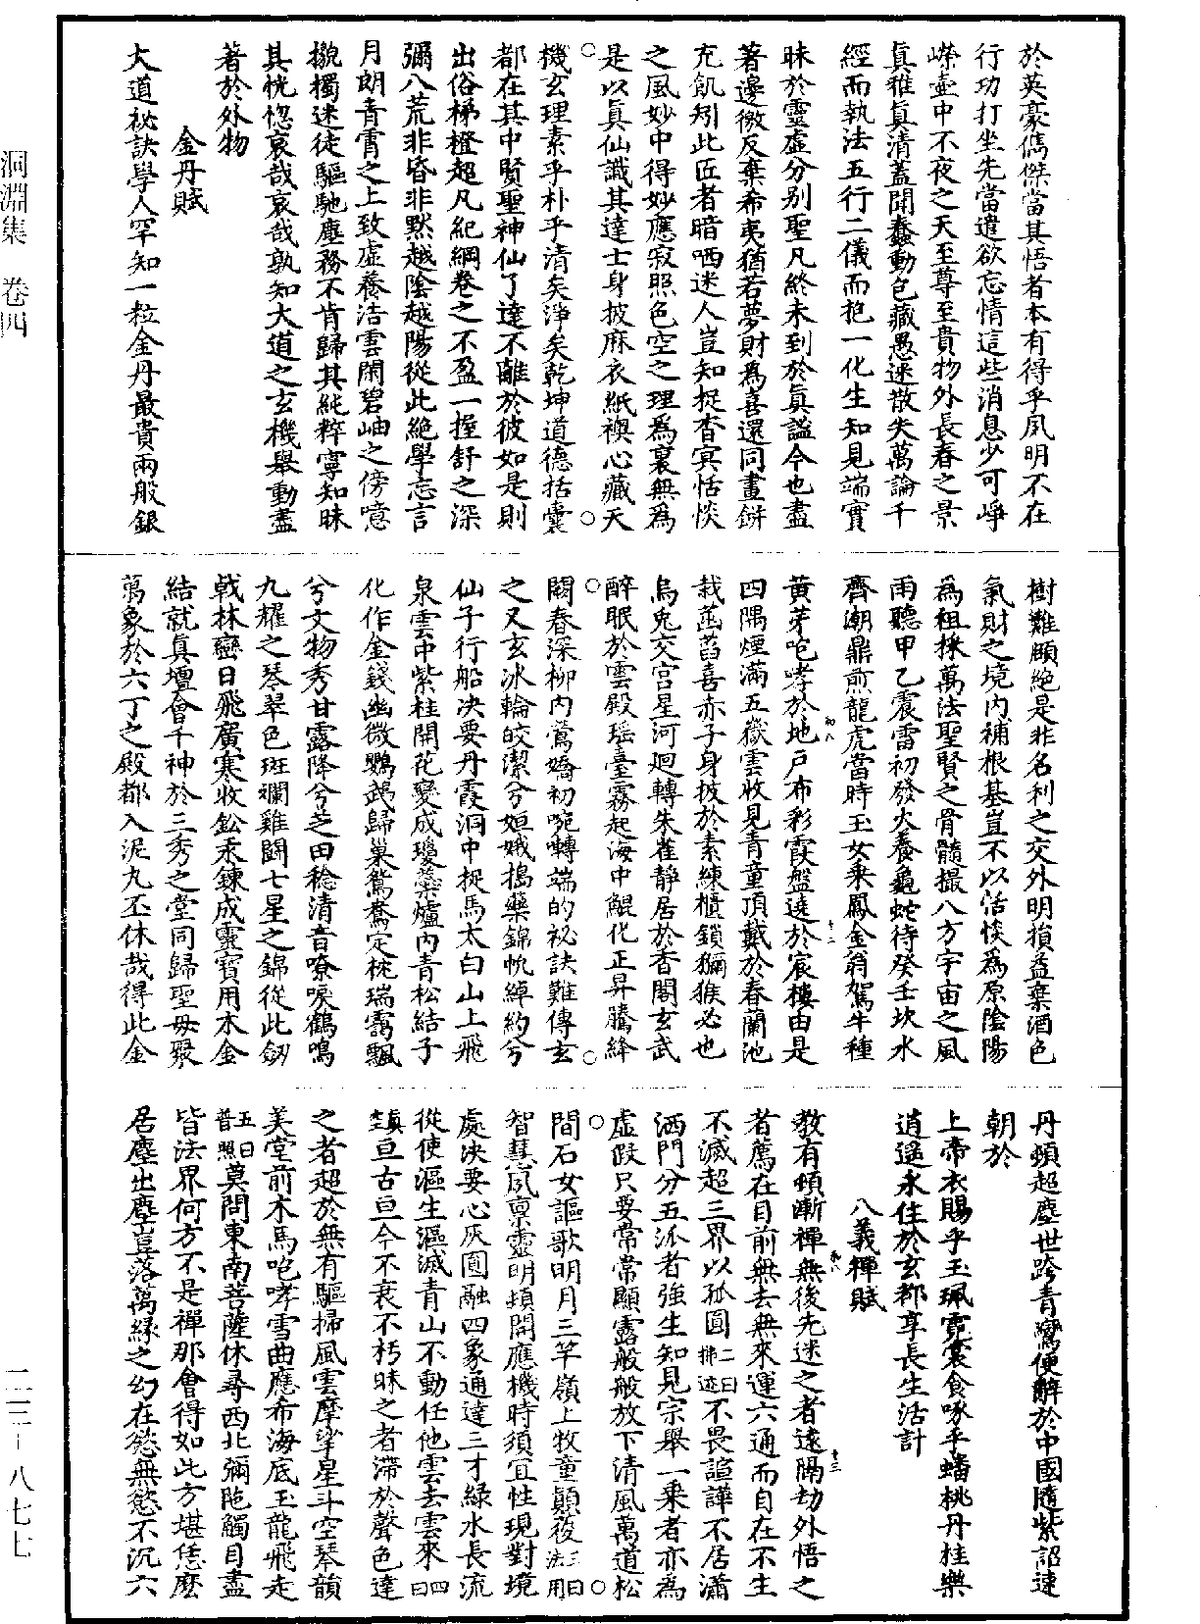 洞淵集　卷四
於英豪儁傑當其悟者本有得乎夙明不在
行功打坐先當遣欲忘情這些消息少可崢
嶸壺中不夜之天至尊至貴物外長春之景
真雅真清蓋聞蠢動包藏愚迷散失萬論千
經而執法五行二儀而抱一化生知見端實
昧於靈虛分别聖凡終未到於真謐今也盡
著邊徼反棄希夷猶若夢財爲喜還同畫餅
充飢矧此匠者暗哂迷人豈知捉杳冥恬惔
之風妙中得妙應寂照色空之理爲裏無爲
是以真仙識其達士身披麻衣紙襖心藏天
機玄理素乎朴乎清矣淨矣乾坤道德括囊
都在其中賢聖神仙了達不離於彼如是則
出俗梯橙超凡紀綱卷之不盈一握舒之深
彌八荒非昏非默越陰越陽從此絶學忘言
月朗青霄之上致虛養浩雲閑碧岫之傍噫
擬獨迷徒驅馳塵務不肯歸其純粹寧知昧
其恍惚哀哉哀哉孰知大道之玄機舉動盡
著於外物
金丹賦
大道祕訣學人罕知一粒金丹最貴兩般銀
樹難顧絶是非名利之交外明損益棄酒色
氣財之境内補根基豈不以恬惔爲原陰陽
爲祖採萬法聖賢之骨髓撮八方宇宙之風
雨聽甲乙震雷初發火養龜蛇待癸壬坎水
齊潮鼎煎龍虎當時玉女乘鳳金翁駕牛種
黄芽咆哮於地户布彩霞盤遶於宸樓由是
四隅煙滿五嶽雲收見青童頂戴於春蘭池
栽菡萏喜赤子身披於素練櫃鎖獼猴必也
烏兎交宫星河迴轉朱雀静居於香閣玄武
醉眠於雲殿瑶臺霧起海中鯤化正昇騰絳
闕春深柳内鶯嬌初婉囀端的祕訣難傳玄
之又玄冰輪皎潔兮姮娥搗藥錦帨綽約兮
仙子行船决要丹霞洞中捉馬太白山上飛
泉雲中紫桂開花變成瓊蘂爐内青松結子
化作金錢幽微鸚鵡歸巢鴛鴦定枕瑞靄飄
兮文物秀甘露降兮芝田稔清音嘹唳鶴鳴
九耀之琴翠色斑斕雞鬪七星之錦從此劒
戟林巒日飛廣寒收鈆汞鍊成靈寶用木金
結就真壇會千神於三秀之堂同歸聖毋聚
萬象於六丁之殿都入泥丸丕休哉得此金
丹頓超塵世跨青鸞便辭於中國隨紫詔速
朝於
上帝衣賜乎玉珮霓裳食啄乎蟠桃丹桂樂
逍遥永住於玄都享長生活計
八義禪賦
教有頓漸禪無後先迷之者遠隔劫外悟之
者薦在目前無去無來運六通而自在不生
不滅超三界以孤圓二曰拂迹不畏諠譁不居瀟
洒門分五派者強生知見宗舉一乘者亦爲
虛假只要常常顯露般般放下清風萬道松
間石女謳歌明月三竿嶺上牧童顛㚆三曰法用
智慧夙禀靈明頻開應機時須宜性現對境
處决要心灰圓融四象通達三才緑水長流
從使漚生漚滅青山不動任他雲去雲來四曰
真空亘古亘今不衰不朽昧之者滯於聲色達
之者超於無有驅掃風雲摩挲星斗空琴韻
美堂前木馬咆哮雪曲應希海底玉龍飛走
五曰普照莫問東南菩薩休尋西北彌陁觸目盡
皆法界何方不是禪那會得如此方堪恁麽
居塵出塵豈落萬緣之幻在慾無慾不沉六
二三—八七七